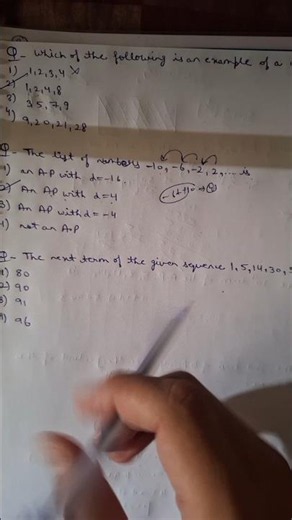 Q- Which of the following is an example of a
1) 1,2,3,4 X
2) 1,2,4,8
3) 3 5, 7, 9
4) 9,20,21,28
Q- The list of numbers -10, -6, -2, 2, ... is
1) an A.P with d = -16
2) An AP with d = 4
3) An AP with d = -4
4) not an A.P
-6+10 =
Q- The next term of the given squence 1, 5, 14, 30,
1) 80
2) 90
3) 91
4) 96